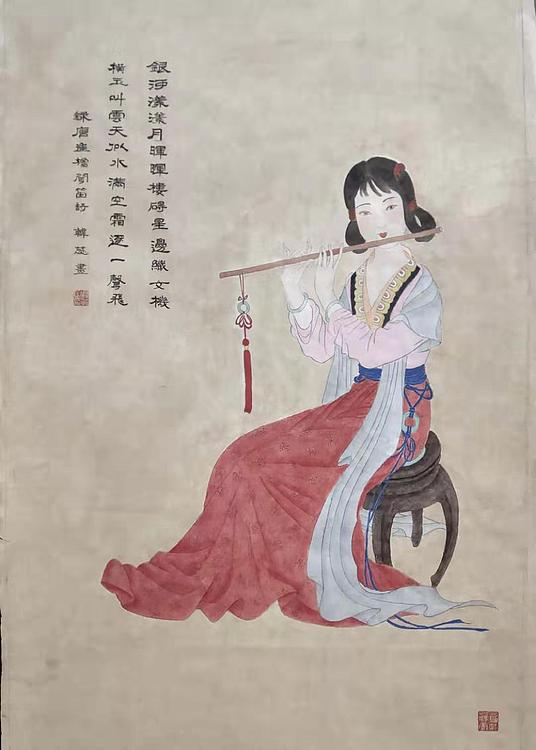 銀河漾漾月暉暉樓碍星邊織女機
橫玉叫雲天似水滿空霜逐一聲飛
錄唐崔櫓聞笛詩 韓 畫